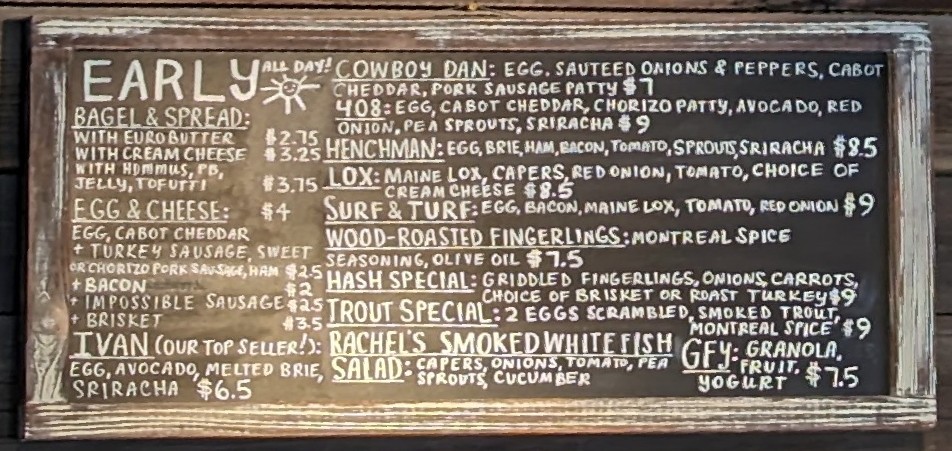 EARLY ALL DAY!
BAGEL & SPREAD:
WITH EURO BUTTER $2.75
WITH CREAM CHEESE $3.25
WITH HUMMUS, PB,
JELLY, TOFUTTI $3.75
EGG & CHEESE: $4
EGG, CABOT CHEDDAR
+ TURKEY SAUSAGE, SWEET
OR CHORIZO PORK SAUSAGE, HAM $2.5
+ BACON $2
+ IMPOSSIBLE SAUSAGE $2.5
+ BRISKET $3.5
IVAN (OUR TOP SELLER!):
EGG, AVOCADO, MELTED BRIE,
SRIRACHA $6.5
COWBOY DAN: EGG, SAUTEED ONIONS & PEPPERS, CABOT
CHEDDAR, PORK SAUSAGE PATTY $7
408: EGG, CABOT CHEDDAR, CHORIZO PATTY, AVOCADO, RED
ONION, PEA SPROUTS, SRIRACHA $9
HENCHMAN: EGG, BRIE, HAM, BACON, TOMATO, SPROUTS, SRIRACHA $8.5
LOX: MAINE LOX, CAPERS, RED ONION, TOMATO, CHOICE OF
CREAM CHEESE $8.5
SURF & TURF: EGG, BACON, MAINE LOX, TOMATO, RED ONION $9
WOOD-ROASTED FINGERLINGS: MONTREAL SPICE
SEASONING, OLIVE OIL $7.5
HASH SPECIAL: GRIDDLED FINGERLINGS, ONIONS, CARROTS,
CHOICE OF BRISKET OR ROAST TURKEY $9
TROUT SPECIAL: 2 EGGS SCRAMBLED, SMOKED TROUT,
MONTREAL SPICE $9
RACHEL'S SMOKED WHITEFISH
SALAD: CAPERS, ONIONS, TOMATO, PEA
SPROUTS, CUCUMBER
GFY: GRANOLA,
FRUIT,
YOGURT $7.5